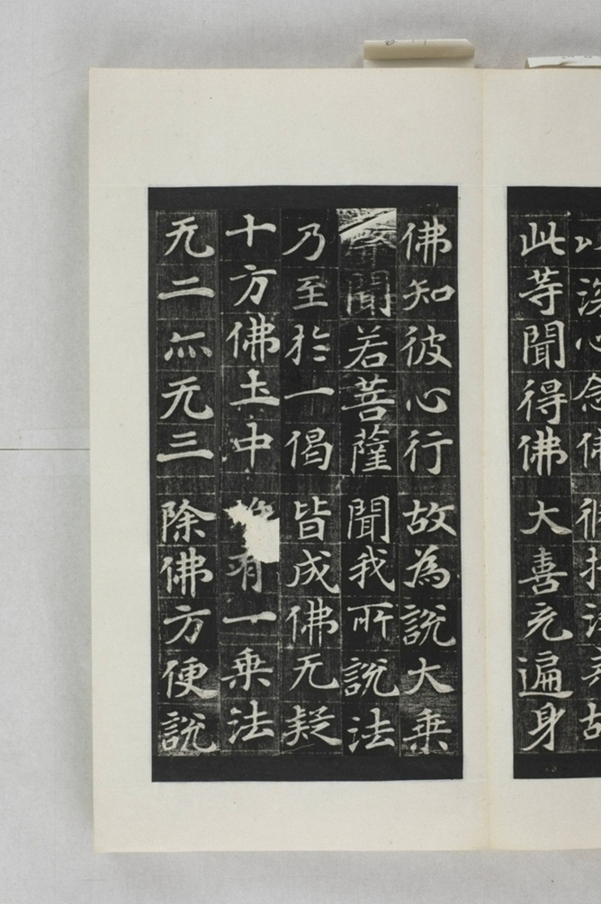 深心念佛
此等聞得佛 大喜充遍身
佛知彼心行 故為說大乗
聞若菩薩 聞我所說法
乃至於一偈 皆成佛无疑
十方佛土中 有一乗法
无二亦无三 除佛方便說